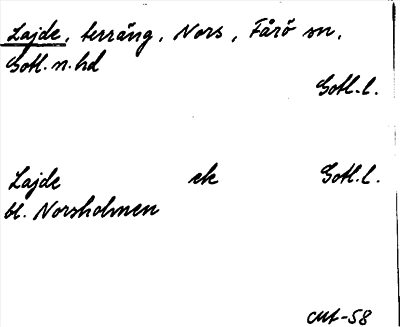 Lajde, terräng, Nors, Fårö sn,
Gotl. n. hd
Gotl. l.
Lajde ek Gotl. l.
bl. Norsholmen
CMA-58